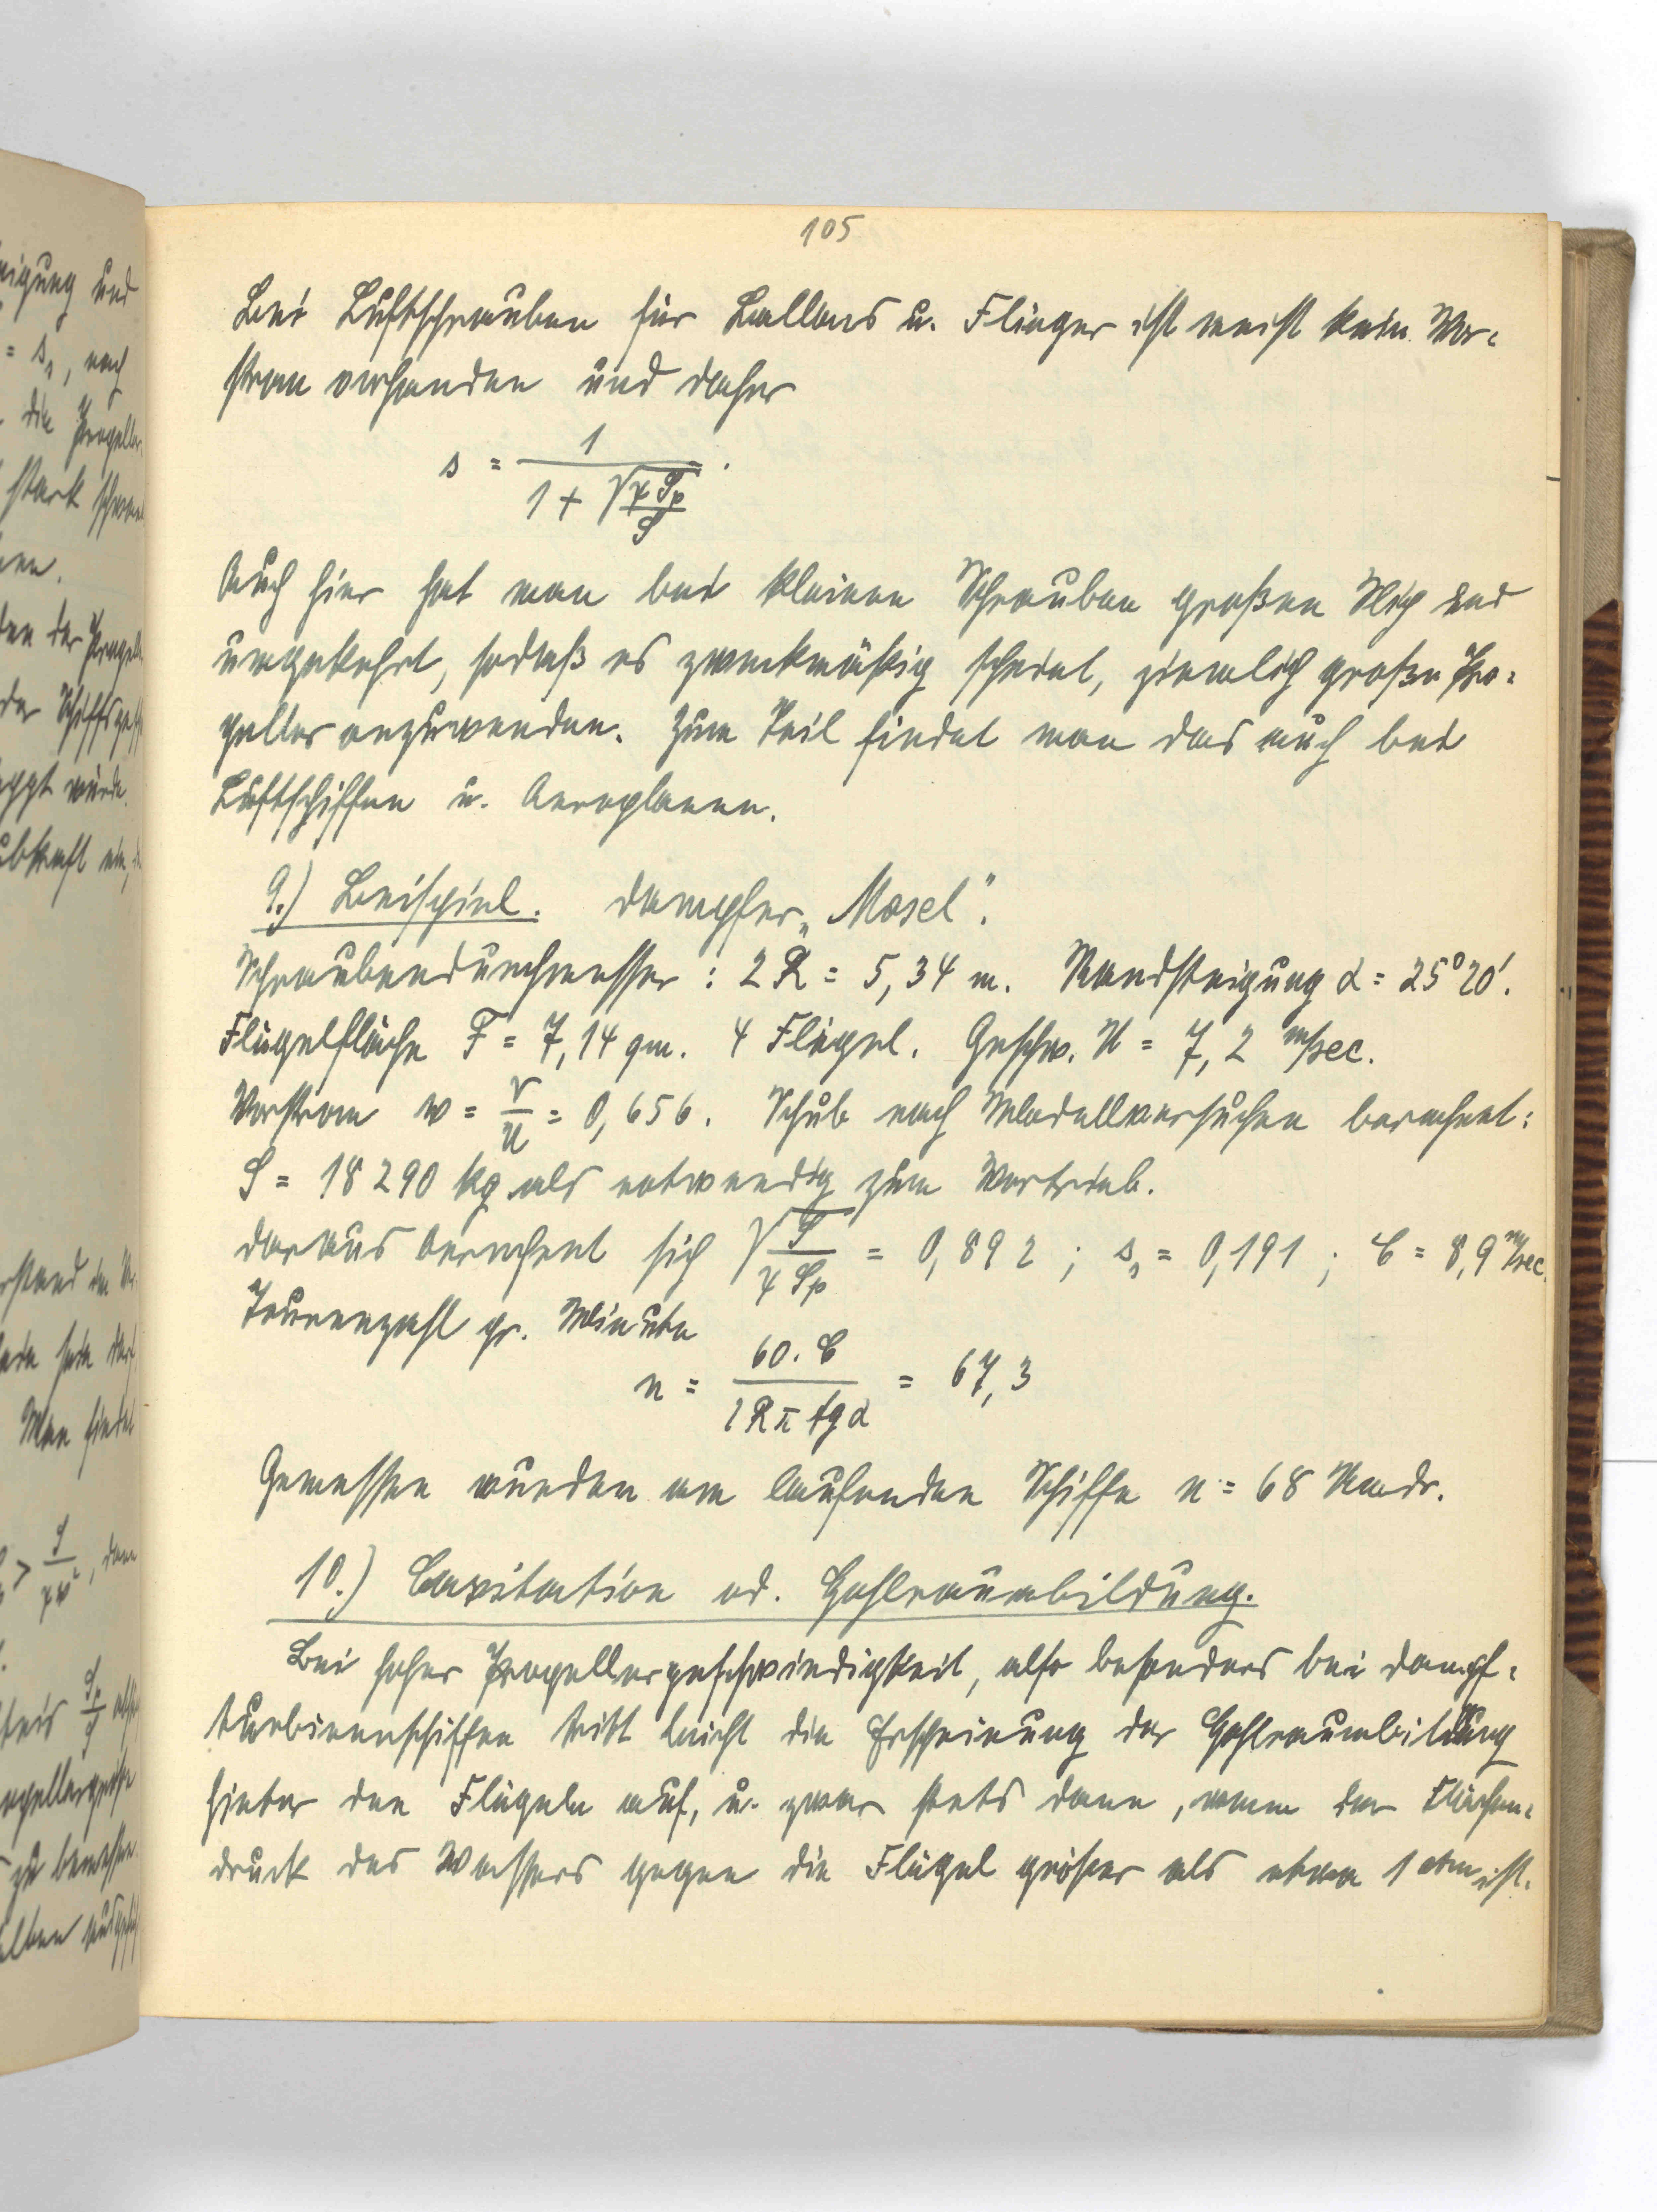 105
Bei Luftschrauben für Ballons u. Flieger ist meist kein Vor-
strom vorhanden und daher
s = 1 / (1 + √(γ Sp / S)).
Auch hier hat man bei kleinen Schrauben großen Slip und
umgekehrt, sodaß es zweckmäßig scheint, ziemlich große Pro-
peller anzuwenden. Zum Teil findet man das auch bei
Luftschiffen u. Aeroplanen.
9.) Beispiel. Dampfer „Mosel".
Schraubendurchmesser: 2R = 5,34 m. Randsteigung α = 25° 20'.
Flügelfläche F = 7,14 qm. 4 Flügel. Geschw. U = 7,2 m/sec.
Vorstrom w = v/U = 0,656. Schub nach Modellversuchen berechnet:
S = 18290 kg als notwendig zum Vortrieb.
Daraus berechnet sich √(S / γ Sp) = 0,892 ; s₁ = 0,191 ; C = 8,9 m/sec.
Tourenzahl pr. Minute
n = 60. C / 2Rπ tg α = 67,3
Gemessen wurden am laufenden Schiffe n = 68 Umdr.
10.) Cavitation od. Hohlraumbildung.
Bei hoher Propellergeschwindigkeit, also besonders bei Dampf-
turbinenschiffen tritt leicht die Erscheinung der Hohlraumbildung
hinter den Flügeln auf, u. zwar stets dann, wenn der Flächen-
druck des Wassers gegen die Flügel größer als etwa 1 atm ist.